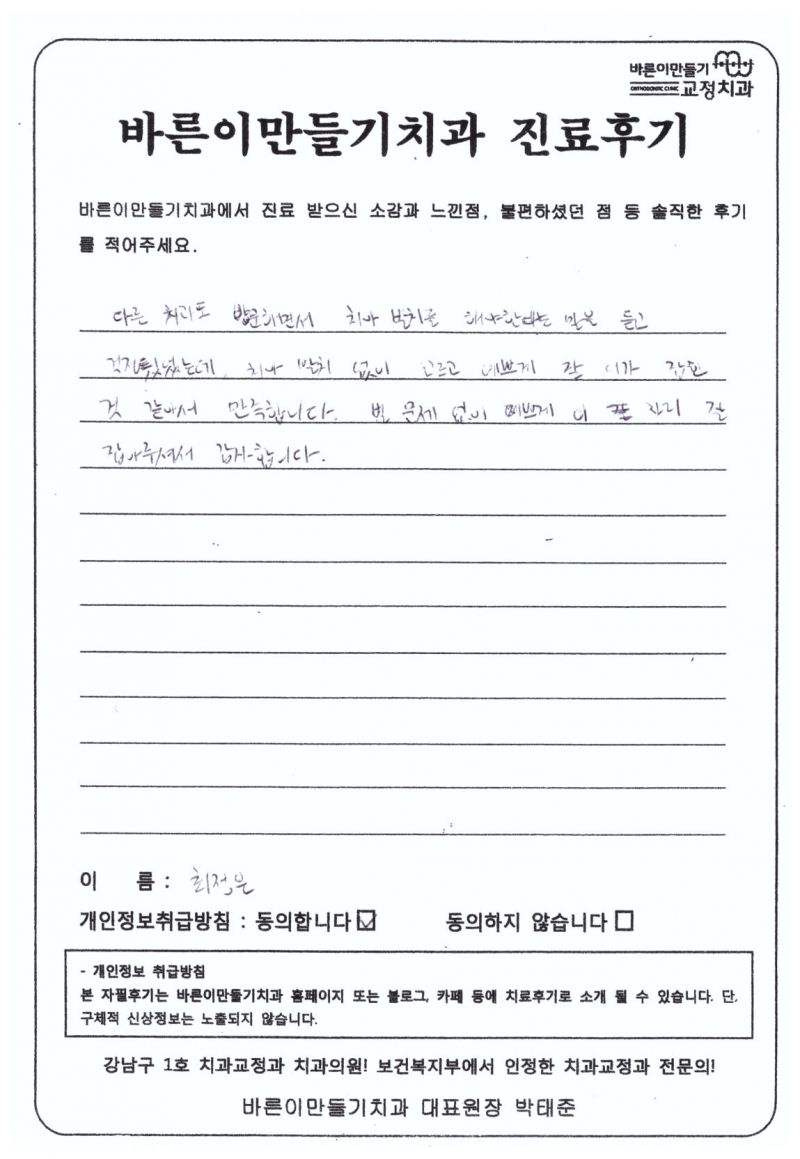 바른이만들기
ORTHODONTIC CLINIC 교정치과
바른이만들기치과 진료후기
바른이만들기치과에서 진료 받으신 소감과 느낀점, 불편하셨던 점 등 솔직한 후기
를 적어주세요.
다른 치과도 방문하면서 치아 발치를 해야한다는 말을 듣고
치아 발치 없이 고르고 예쁘게 잘
것 같아서 만족합니다. 별 문제 없이 예쁘게 이 자리 잘
잡아주셔서 감사합니다.
이 름 : 최정은
개인정보취급방침 : 동의합니다 ☑ 동의하지 않습니다 ☐
- 개인정보 취급방침
본 자필후기는 바른이만들기치과 홈페이지 또는 블로그, 카페 등에 치료후기로 소개 될 수 있습니다. 단,
구체적 신상정보는 노출되지 않습니다.
강남구 1호 치과교정과 치과의원! 보건복지부에서 인정한 치과교정과 전문의!
바른이만들기치과 대표원장 박태준